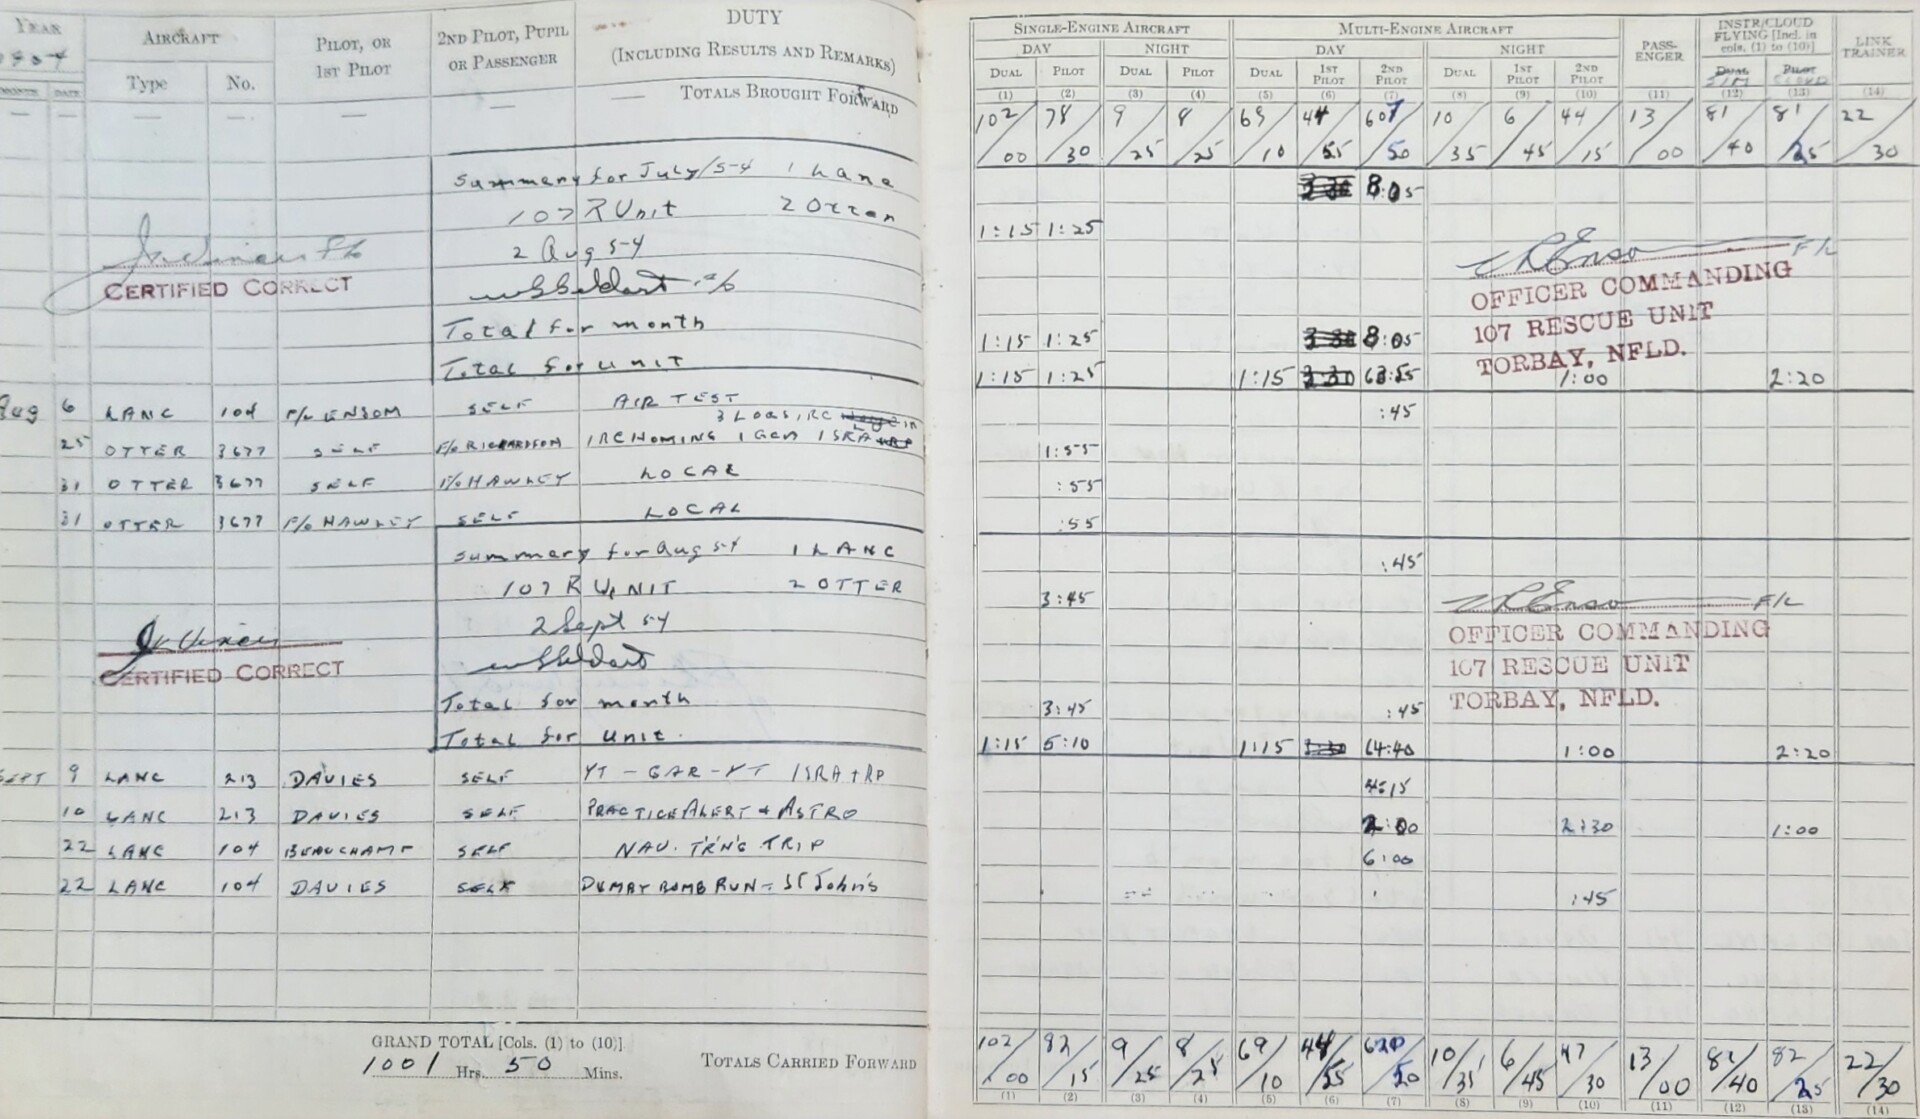 YEAR AIRCRAFT PILOT, OR 1ST PILOT 2ND PILOT, PUPIL OR PASSENGER DUTY (INCLUDING RESULTS AND REMARKS)
MONTH DATE Type No.
— — — — — — TOTALS BROUGHT FORWARD
Summary for July/54 1 Lanc
107 R Unit 2 Otter
2 Aug 54
CERTIFIED CORRECT
Total for month
Total for unit
Aug 6 LANC 104 F/L ENSOM SELF AIR TEST
3 LOCS, RC in
25 OTTER 3677 SELF F/O RICHARDSON 1 RC HOMING 1 GCA 1 SRA
31 OTTER 3677 SELF F/O HAWLEY LOCAL
31 OTTER 3677 F/O HAWLEY SELF LOCAL
Summary for Aug 54 1 LANC
107 R UNIT 2 OTTER
2 Sept 54
CERTIFIED CORRECT
Total for month
Total for unit.
SEPT 9 LANC 213 DAVIES SELF YT - GAR - YT 1 SRA + RP
10 LANC 213 DAVIES SELF PRACTICE ALERT & ASTRO
22 LANC 104 BEAUCHAMP SELF NAV. TR'N'G TRIP
22 LANC 104 DAVIES SELF DUMMY BOMB RUN - ST John's
GRAND TOTAL [Cols. (1) to (10)]
1001 Hrs. 50 Mins.
TOTALS CARRIED FORWARD
SINGLE-ENGINE AIRCRAFT MULTI-ENGINE AIRCRAFT PASSENGER INSTR/CLOUD FLYING [Incl. in cols. (1) to (10)] LINK TRAINER
DAY NIGHT DAY NIGHT
DUAL PILOT DUAL PILOT DUAL 1ST PILOT 2ND PILOT DUAL 1ST PILOT 2ND PILOT DUAL PILOT
SIM CLOUD
(1) (2) (3) (4) (5) (6) (7) (8) (9) (10) (11) (12) (13) (14)
102/00 78/30 9/25 8/25 69/10 44/55 607/50 10/35 6/45 44/15 13/00 81/40 81/25 22/30
8:05
1:15 1:25
F/L
OFFICER COMMANDING
107 RESCUE UNIT
TORBAY, NFLD.
1:15 1:25 8:05
1:15 1:25 1:15 3:30 63:55 1:00 2:20
:45
1:55
:55
:55
:45
3:45
F/L
OFFICER COMMANDING
107 RESCUE UNIT
TORBAY, NFLD.
3:45 :45
1:15 5:10 1:15 3:30 64:40 1:00 2:20
4:15
2:00 2:30 1:00
6:00
:45
102/00 82/15 9/25 8/25 69/10 44/55 620/50 10/35 6/45 47/30 13/00 81/40 82/25 22/30
(1) (2) (3) (4) (5) (6) (7) (8) (9) (10) (11) (12) (13) (14)